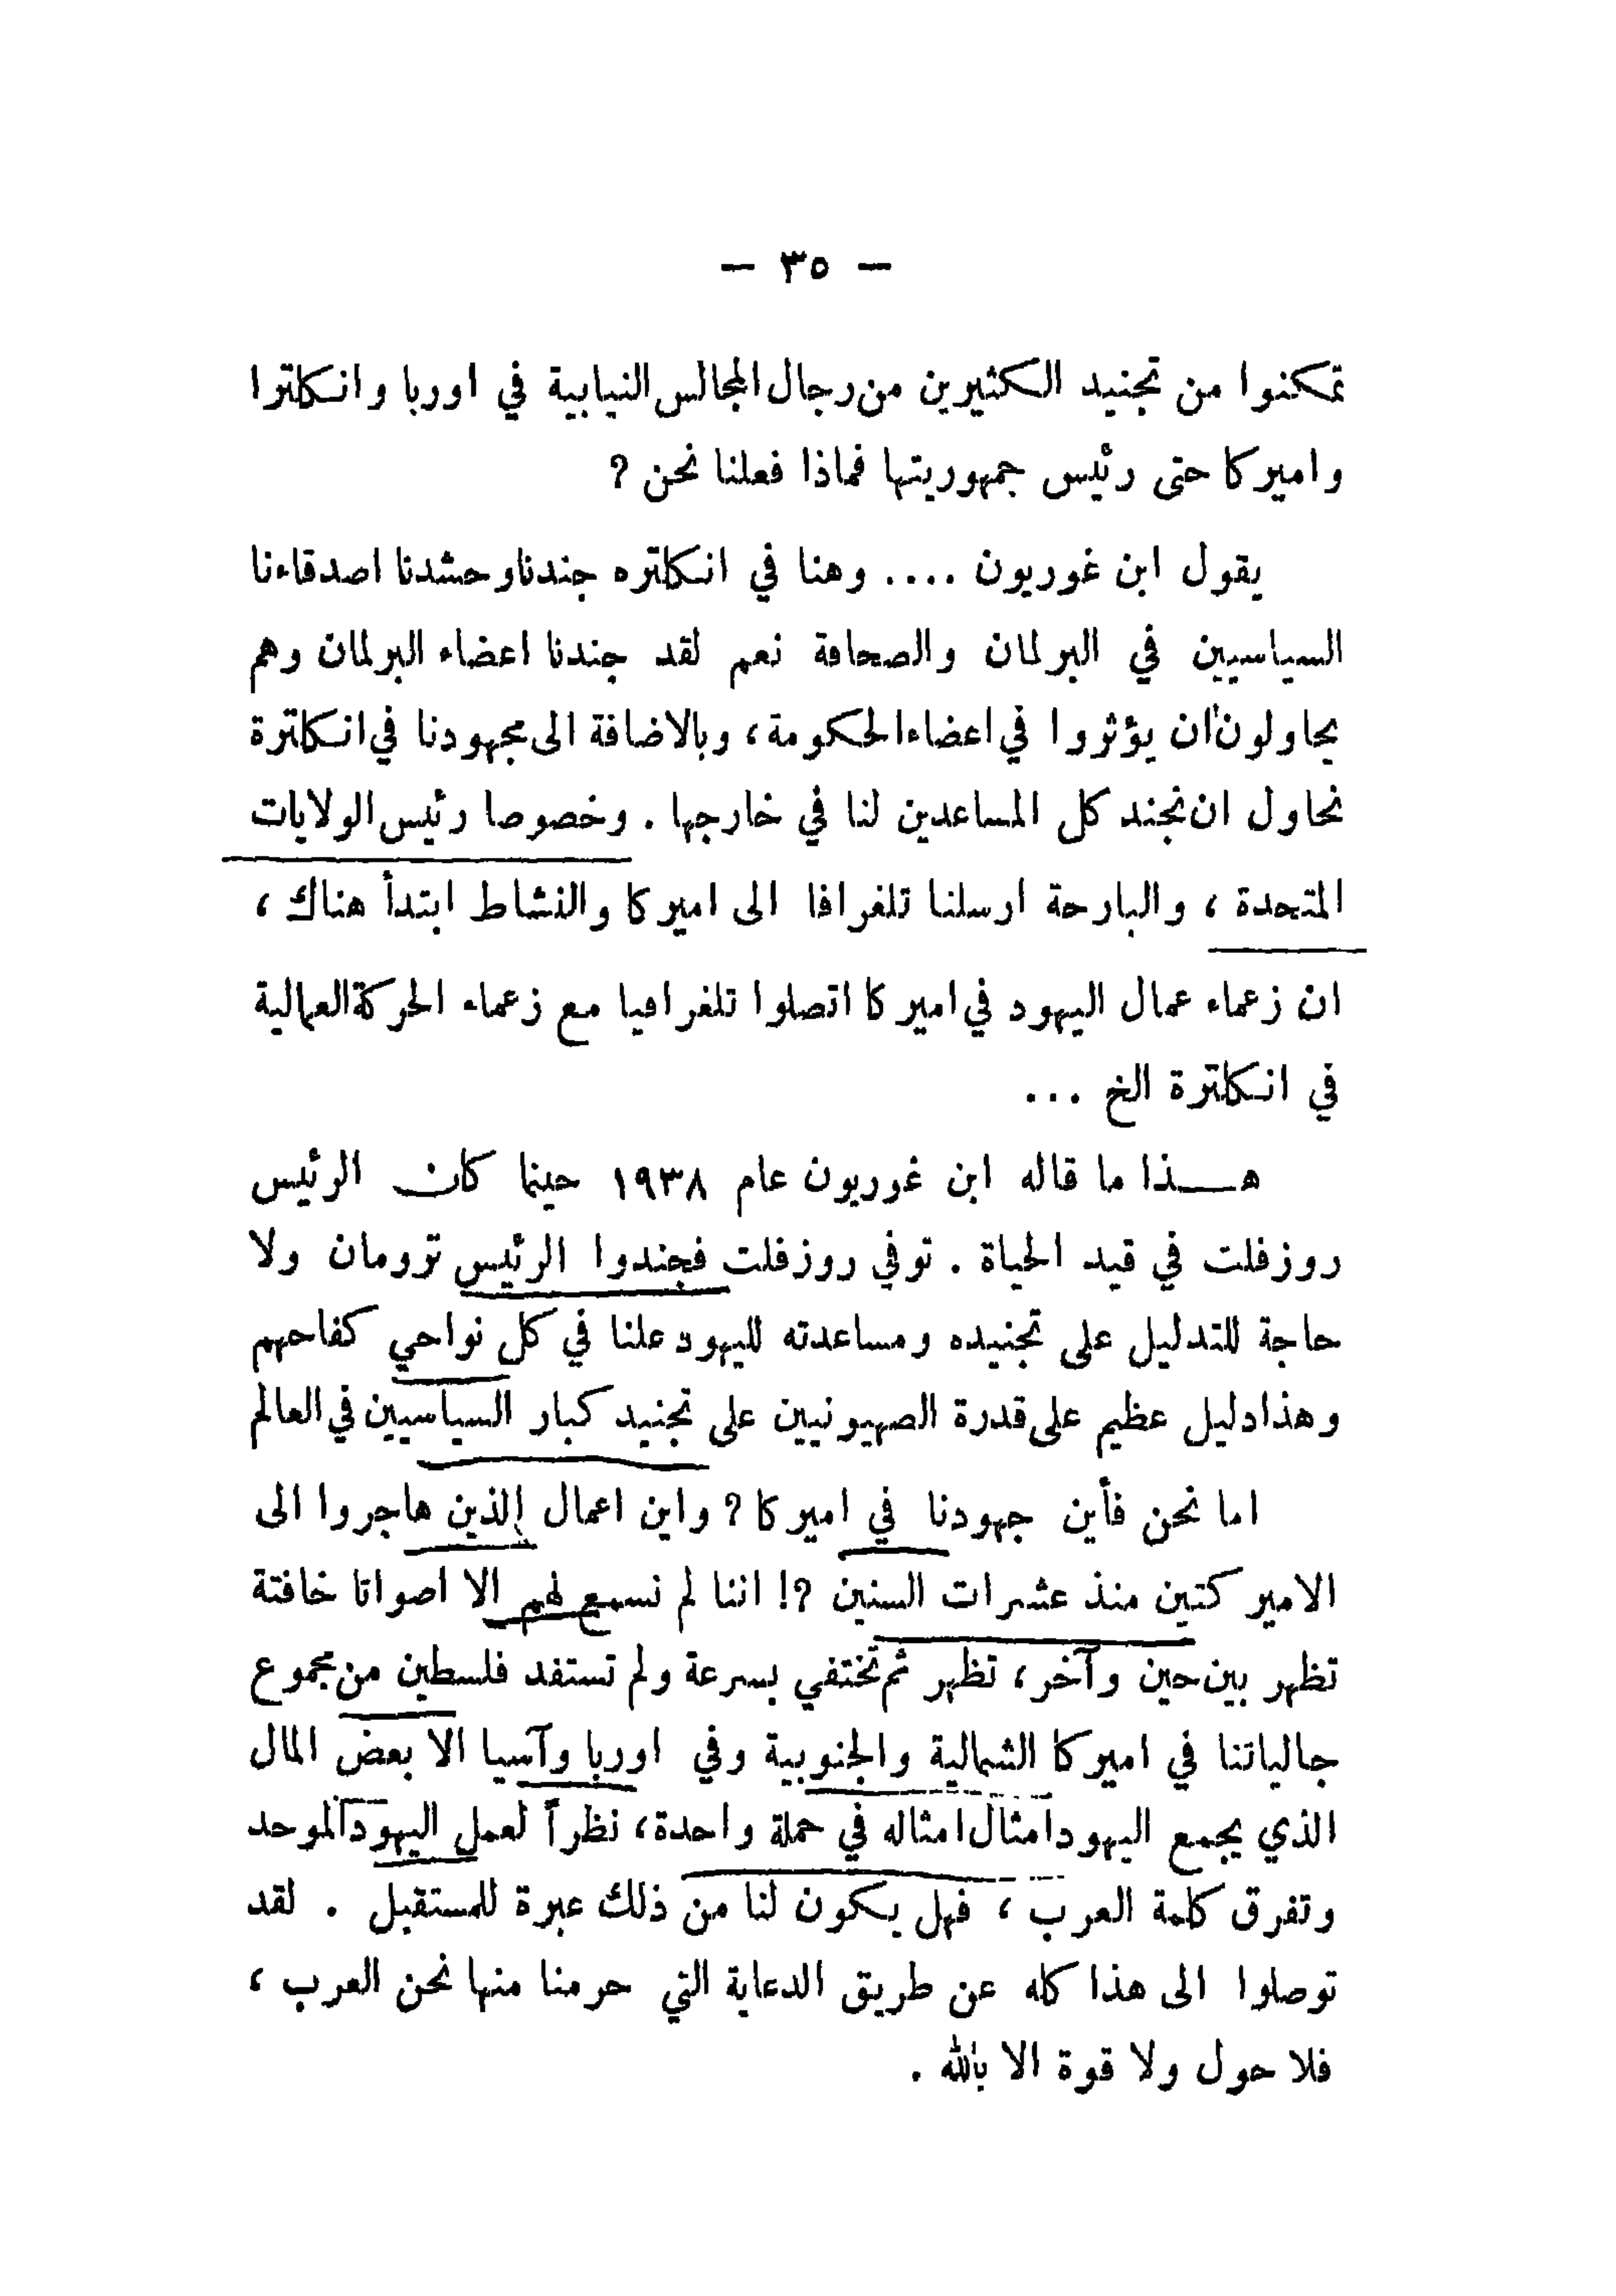 — ٣٥ —
تمكنوا من تجنيد الكثيرين من رجال المجالس النيابية في اوربا وانكلترا
واميركا حتى رئيس جمهوريتها فماذا فعلنا نحن ؟
يقول ابن غوريون .... وهنا في انكلتره جندنا وحشدنا اصدقاءنا
السياسيين في البرلمان والصحافة نعم لقد جندنا اعضاء البرلمان وهم
يحاولون ان يؤثروا في اعضاء الحكومة ، وبالاضافة الى مجهودنا في انكلترة
نحاول ان نجند كل المساعدين لنا في خارجها . وخصوصا رئيس الولايات
المتحدة ، والبارحة ارسلنا تلغرافا الى اميركا والنشاط ابتدأ هناك ،
ان زعماء عمال اليهود في اميركا اتصلوا تلغرافيا مع زعماء الحركة العمالية
في انكلترة الخ ...
هـذا ما قاله ابن غوريون عام ١٩٣٨ حينما كان الرئيس
روزفلت في قيد الحياة . توفي روزفلت فجندوا الرئيس ترومان ولا
حاجة للتدليل على تجنيده ومساعدته لليهود علنا في كل نواحي كفاحهم
وهذا دليل عظيم على قدرة الصهيونيين على تجنيد كبار السياسيين في العالم
اما نحن فأين جهودنا في اميركا ؟ واين اعمال الذين هاجروا الى
الاميركتين منذ عشرات السنين ؟! اننا لم نسمع لهم الا اصواتا خافتة
تظهر بين حين وآخر ، تظهر ثم تختفي بسرعة ولم تستفد فلسطين من مجموع
جالياتنا في اميركا الشمالية والجنوبية وفي اوربا وآسيا الا بعض المال
الذي يجمع اليهود امثال امثاله في حملة واحدة ، نظراً لعمل اليهود الموحد
وتفرق كلمة العرب ، فهل يكون لنا من ذلك عبرة للمستقبل . لقد
توصلوا الى هذا كله عن طريق الدعاية التي حرمنا منها نحن العرب ،
فلا حول ولا قوة الا بالله .